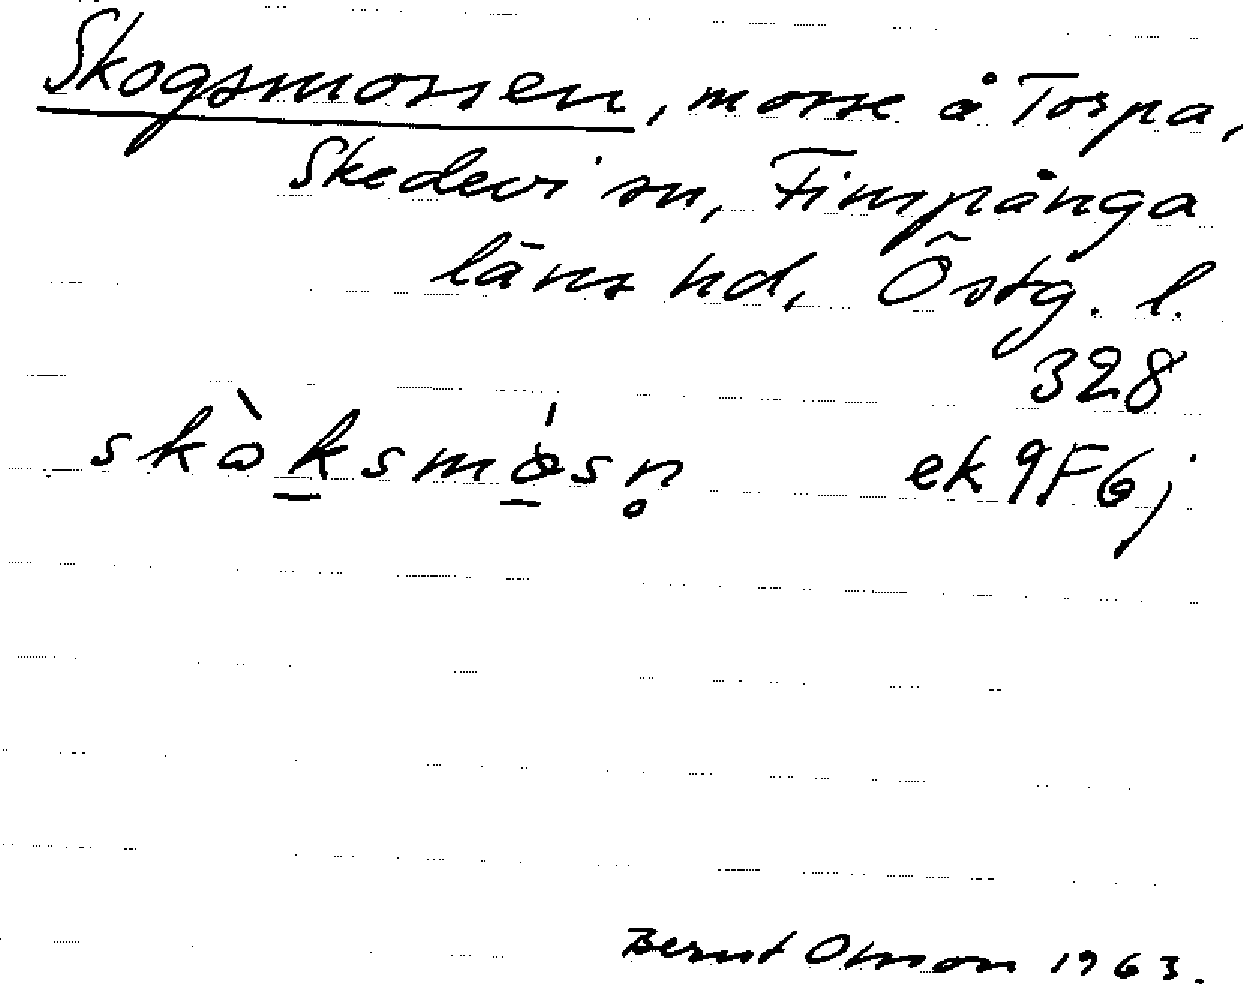 Skogsmossen, mosse å Torpa,
Skedevi sn, Finspånga
läns hd, Östg. l.
328
skòksmósn ek 9F6j
Bernt Olsson 1963.